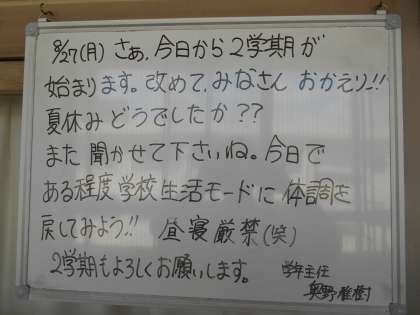 8/27(月) さぁ、今日から2学期が
始まります。改めて、みなさん おかえりー!!
夏休みどうでしたか??
また聞かせて下さいね。今日で
ある程度学校生活モードに体調を
戻してみよう!! 昼寝厳禁(笑)
2学期もよろしくお願いします。 学年主任
奥野雅樹